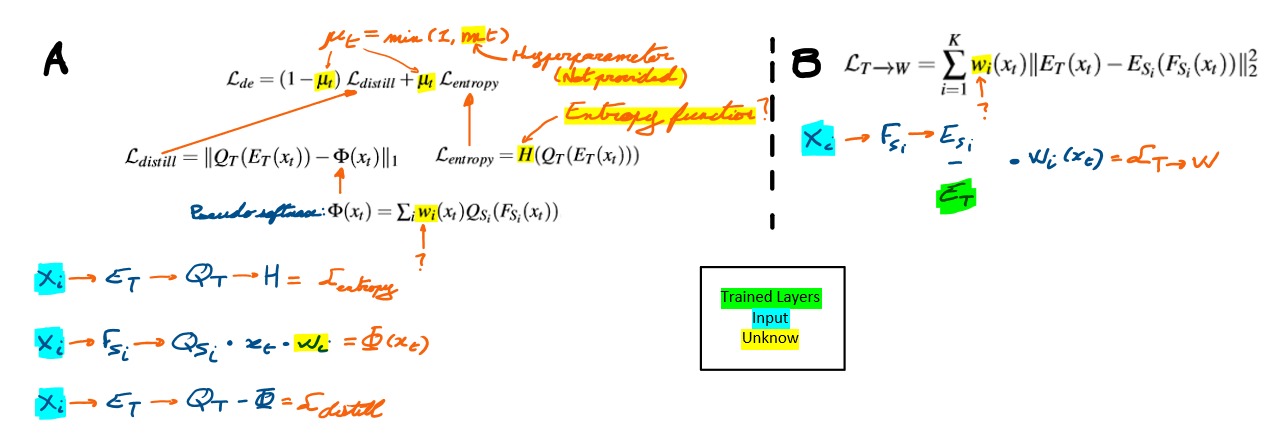 A
μ_t = min(1, mt)
Hyperparameter
(Not provided)
L_de = (1−μ_t) L_distill + μ_t L_entropy
Entropy function?
L_distill = ‖Q_T(E_T(x_t)) − Φ(x_t)‖_1
L_entropy = H(Q_T(E_T(x_t)))
Pseudo softmax: Φ(x_t) = ∑_i w_i(x_t)Q_{S_i}(F_{S_i}(x_t))
?
X_i → E_T → Q_T → H = L_entropy
X_i → F_{S_i} → Q_{S_i} · x_t · w_i = Φ(x_t)
X_i → E_T → Q_T − Φ = L_distill
B
L_{T→W} = ∑_{i=1}^{K} w_i(x_t)‖E_T(x_t) − E_{S_i}(F_{S_i}(x_t))‖_2^2
?
X_i → F_{S_i} → E_{S_i}
−
· w_i(x_t) = L_{T→W}
E_T
Trained Layers
Input
Unknow